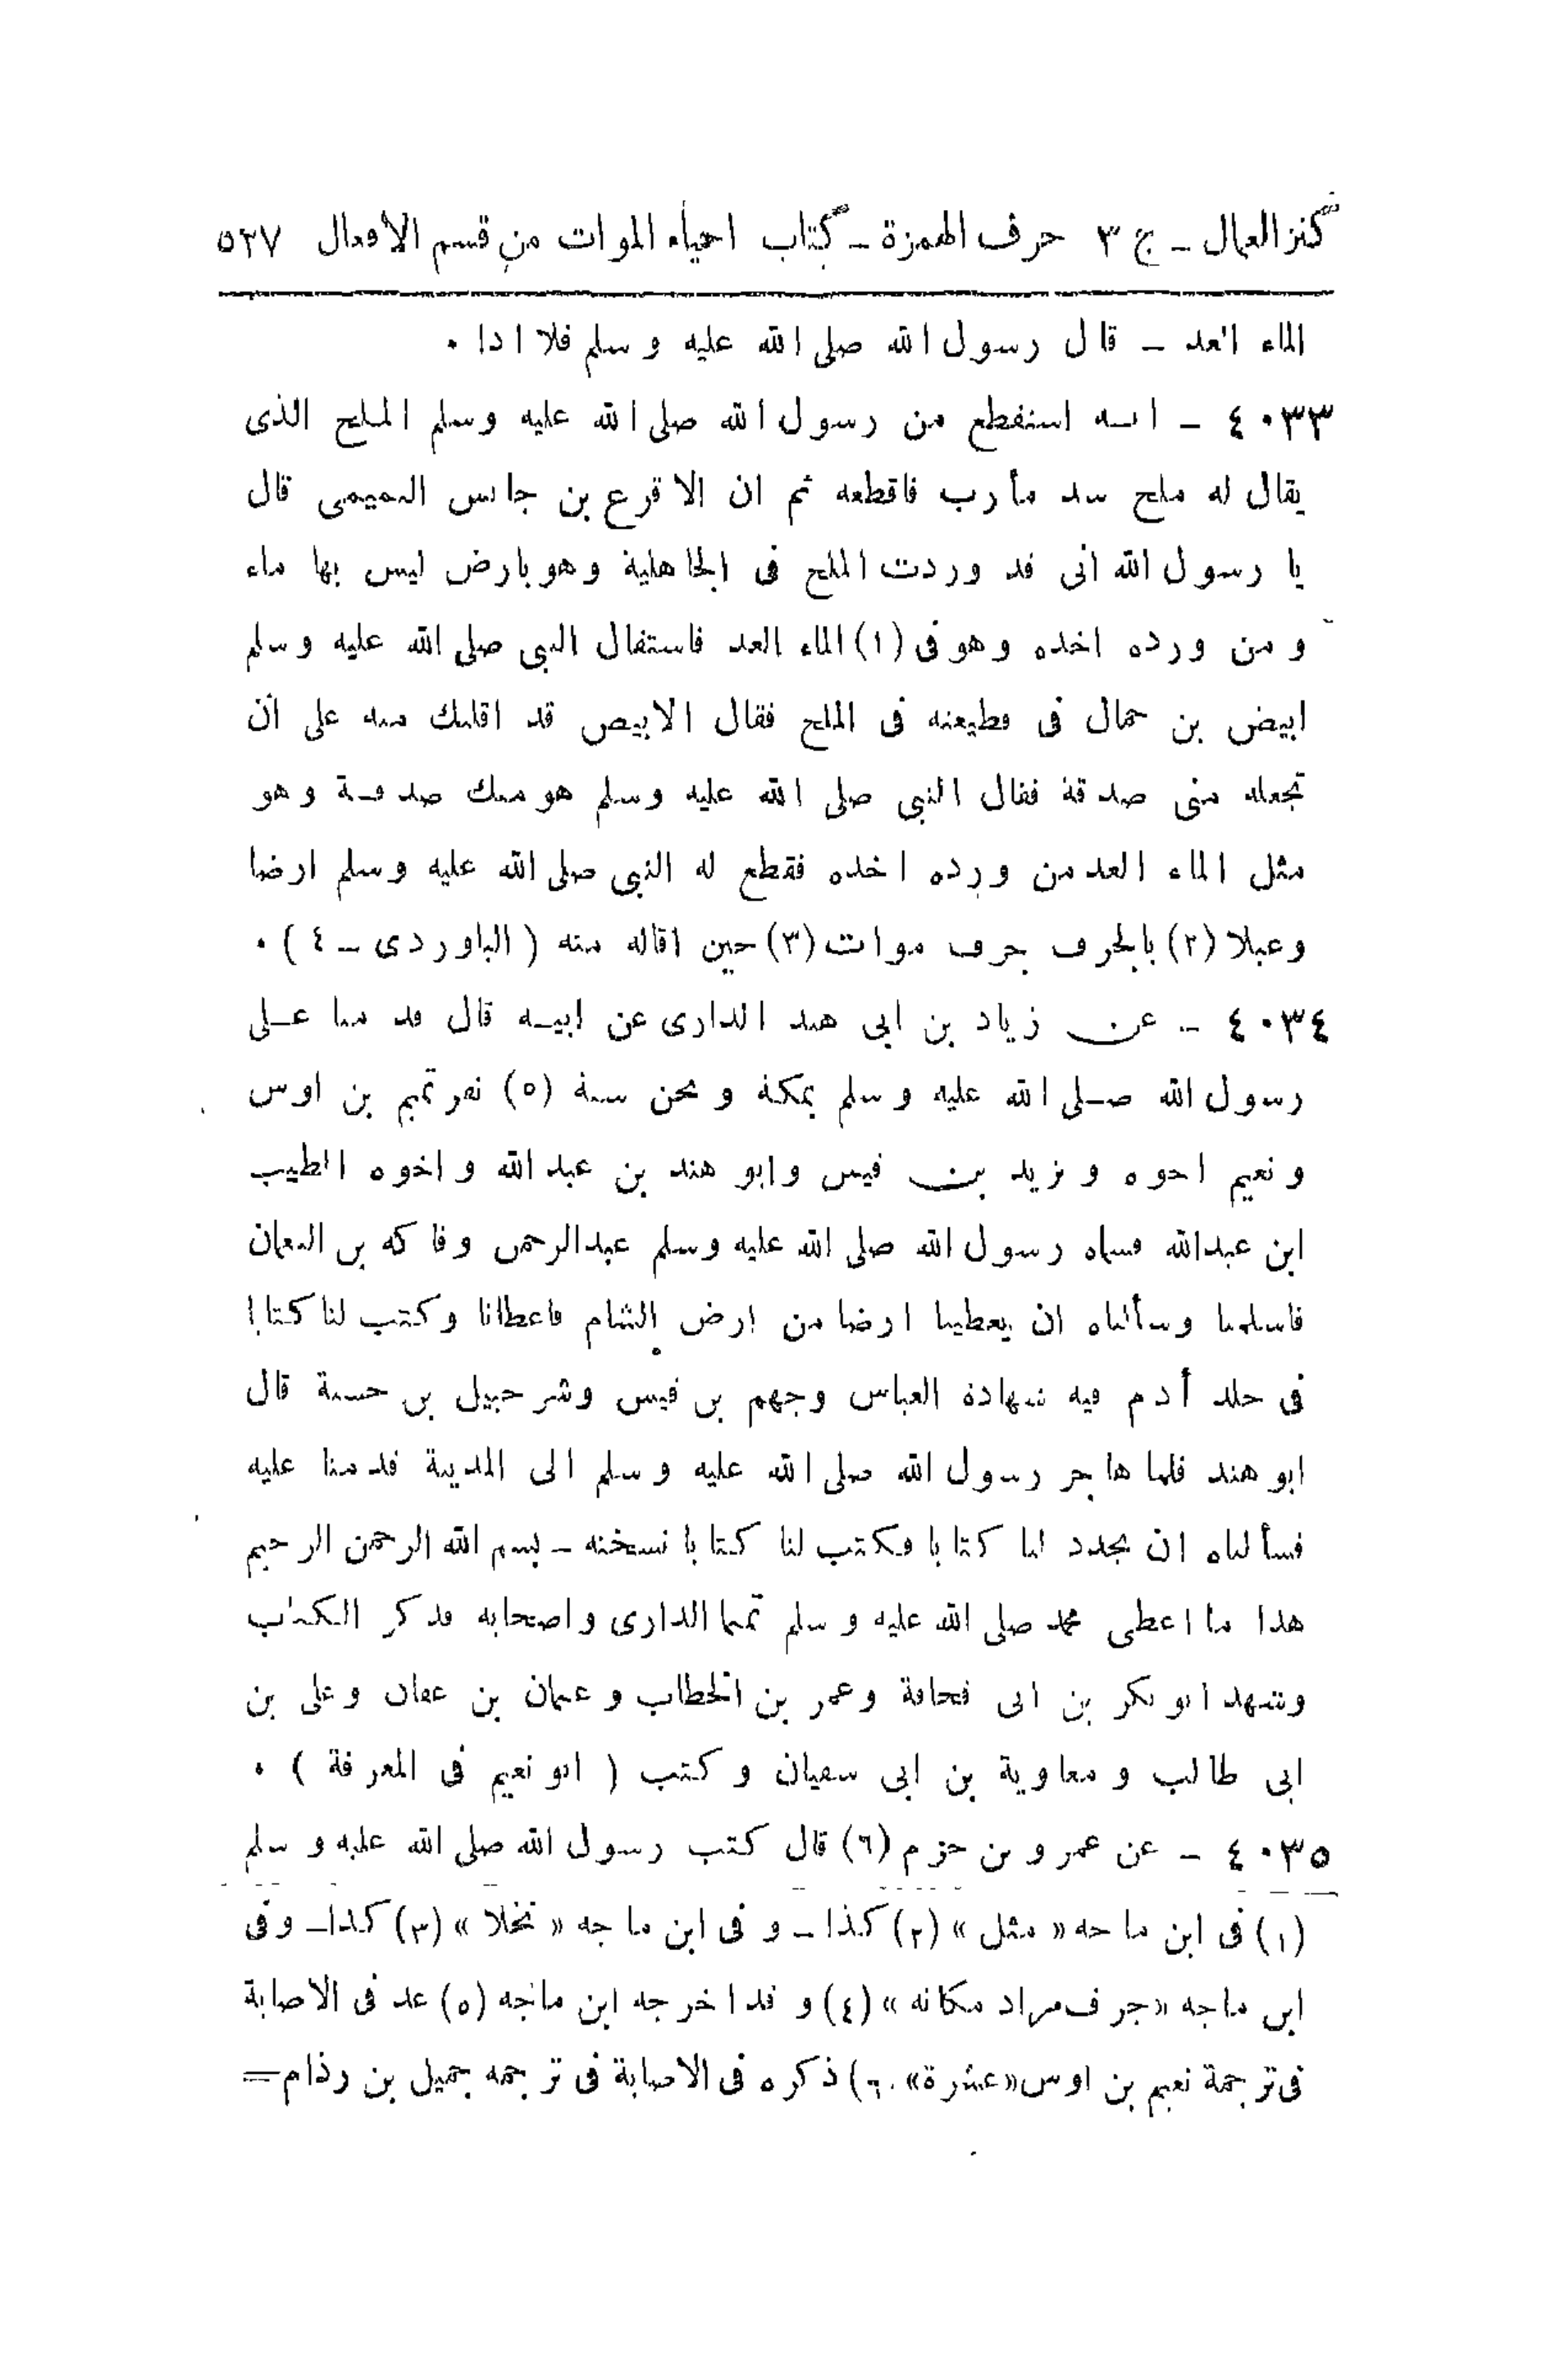 كنز العمال ـ ج ٣ حرف الهمزة ـ كتاب احياء الموات من قسم الافعال ٥٢٧
الماء العد ـ قال رسول الله صلى الله عليه و سلم فلا اذا ٠
٤٠٣٣ ـ انـه استقطع من رسول الله صلى الله عليه وسلم الملح الذى
يقال له ملح سد مأرب فاقطعه ثم ان الاقرع بن حابس التميمى قال
يا رسول الله انى قد وردت الملح فى الجاهلية وهو بارض ليس بها ماء
و من ورده اخذه وهو فى (١) الماء العد فاستقال النبى صلى الله عليه وسلم
ابيض بن حمال فى قطيعته فى الملح فقال الابيض قد اقلتك منه على أن
تجعله منى صدقة فقال النبى صلى الله عليه وسلم هو منك صدقـة وهو
مثل الماء العد من ورده اخذه فقطع له النبى صلى الله عليه وسلم ارضا
وعبلا (٢) بالجرف جرف موات (٣) حين اقاله منه ( الباوردى ـ ٤ ) ٠
٤٠٣٤ ـ عن زياد بن ابى هند الدارى عن ابيـه قال قدمنا عـلى
رسول الله صـلى الله عليه وسلم بمكة ونحن ستة (٥) نفر تميم بن اوس
ونعيم اخوه ويزيد بن قيس وابو هند بن عبد الله واخوه الطيب
ابن عبدالله فسماه رسول الله صلى الله عليه وسلم عبدالرحمن وفاكه بن النعمان
فاسلمنا وسألناه ان يعطينا ارضا من ارض الشام فاعطانا وكتب لنا كتابا
فى جلد أدم فيه شهادة العباس وجهم بن قيس وشرحبيل بن حسنة قال
ابو هند فلما هاجر رسول الله صلى الله عليه وسلم الى المدينة قدمنا عليه
فسألناه ان يجدد لنا كتابا فكتب لنا كتابا نسخته ـ بسم الله الرحمن الرحيم
هذا ما اعطى محمد صلى الله عليه وسلم تميما الدارى واصحابه فذكر الكتاب
وشهد ابو بكر بن ابى قحافة وعمر بن الخطاب وعثمان بن عفان وعلى بن
ابى طالب ومعاوية بن ابى سفيان وكتب ( ابو نعيم فى المعرفة ) ٠
٤٠٣٥ ـ عن عمرو بن حزم (٦) قال كتب رسول الله صلى الله عليه وسلم
(١) فى ابن ماجه « مثل » (٢) كذا ـ و فى ابن ماجه « نخلا » (٣) كذا ـ وفى
ابن ماجه «جرف مراد مكانه» (٤) و قد اخرجه ابن ماجه (٥) عد فى الاصابة
فى ترجمة نعيم بن اوس «عشرة» (٦) ذكره فى الاصابة فى ترجمه جميل بن رذام =